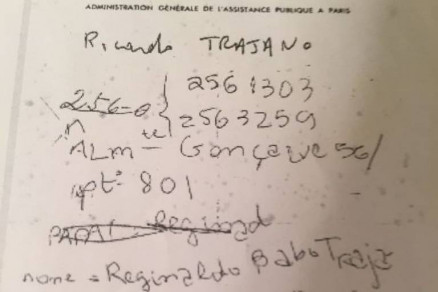 ADMINISTRATION GÉNÉRALE DE L'ASSISTANCE PUBLIQUE A PARIS
Ricardo TRAJANO
256 1303
256-0
2563259
ALMte - Gonçalve 56/
apt: 801
PAPAI Reginad
nome = Reginaldo Babo Traja